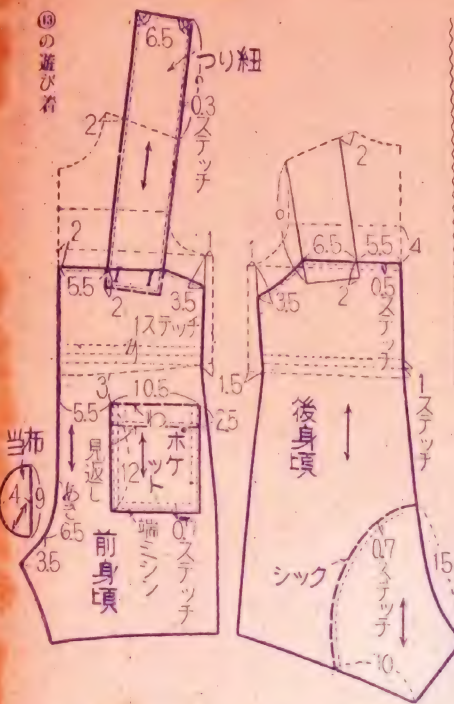 ⑬の遊び着
6.5
つり紐
0.3ステッチ
2
2
5.5
2
3.5
1
1ステッチ
3
10.5
5.5
2.5
わ
ポケット
12
見返し
あき6.5
端ミシン
0.7ステッチ
当布
4
9
3.5
前身頃
2
6.5
5.5
4
1
3.5
2
0.5ステッチ
1.5
1ステッチ
後身頃
シック
0.7ステッチ
15
10